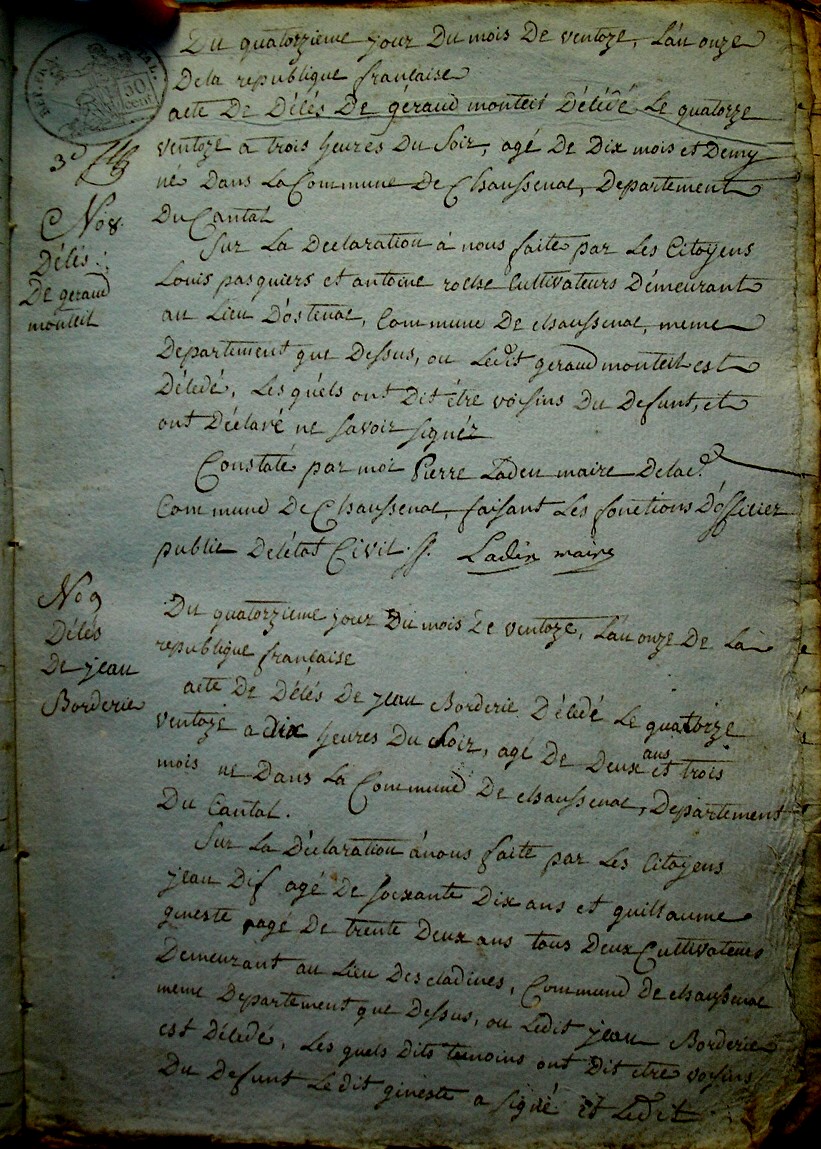 Du quatorzieme jour Du mois De ventoze, L'an onze
De la republique française
acte De Décés De géraud monteil Décédé Le quatorze
ventoze a trois heures Du Soir, agé De Dix mois et Demy
né Dans La Commune De Chaussenac, Departement
Du Cantal
Sur La Declaration à nous faite par Les Citoyens
Louis pasquiers et antoine roche Cultivateurs Démeurant
au Lieu D'ostenac, Commune De chaussenac, meme
Departement que Dessus, ou Ledit geraud monteil est
Décedé, Lesquéls ont Dit étre voisins Du Defunt, et
ont Déclaré ne savoir signér
Constaté par moi Pierre Ladeu maire De lad.
Commune De Chaussenac, faisant Les fonctions D'officier
public De létat Civil.
Ladeu maire
No 8
Décés
De geraud
monteil
30
cent.
3e
No 9
Décés
De jean
Borderie
Du quatorzieme jour Du mois De ventoze, L'an onze De La
republique française
acte De Décés De jean Borderie Décédé Le quatorze
ventoze a Dix heures Du Soir, agé De Deux ans et trois
mois né Dans La Commune De chaussenac, Departement
Du Cantal.
Sur La Déclaration à nous faite par Les Citoyens
jean Dif agé De soixante Dix ans et guillaume
gineste agé De trente Deux ans tous Deux Cultivateurs
Demeurant au Lieu Descladines, Commune De chaussenac
meme Departement que Dessus, ou Ledit jean Borderie
est Décedé, Lesquels Dits temoins ont Dit etre voisins
Du Defunt Le dit gineste a signé et Ledit